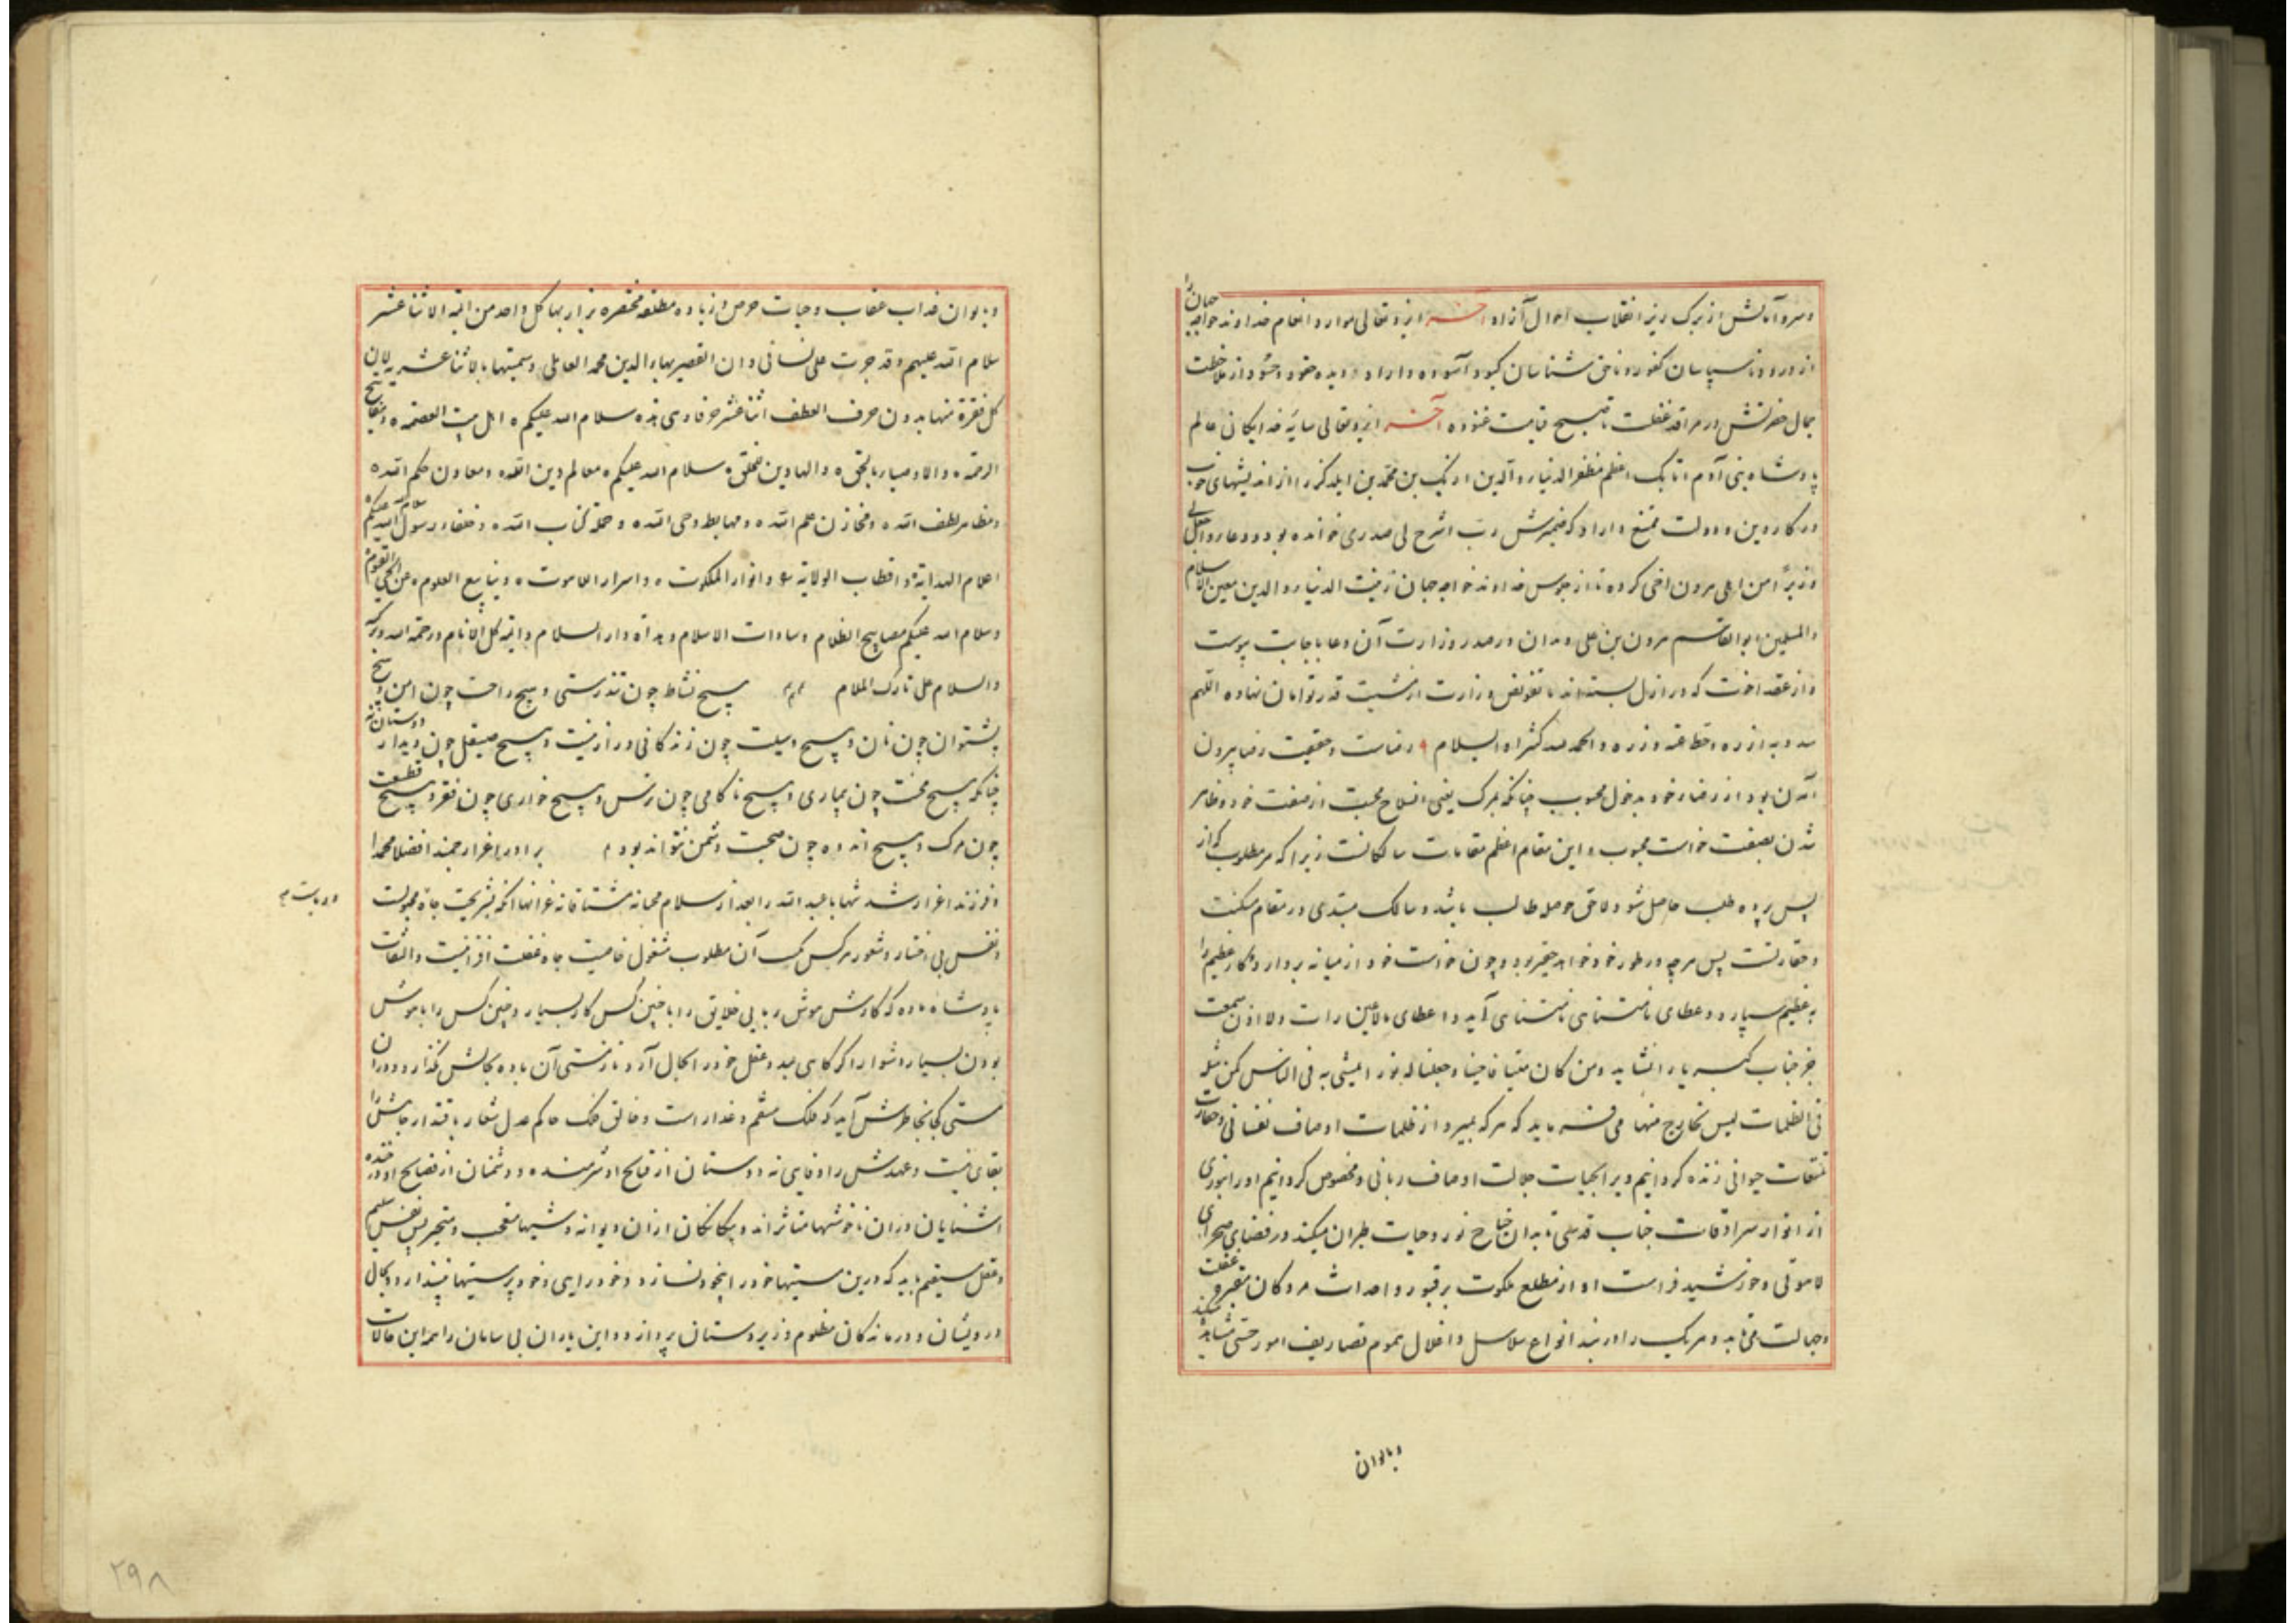 و سرو آمالش از برگ ریز انقلاب احوال آزاد آخر ایزد تعالی موارد انعام خداوند خواجه جهان را
از ورود ناسپاسان کفور و ناحق شناسان کبود آسوده داراد و دیده حقود و حسود از ملاحظت
جمال حضرتش در مراقد غفلت تا صبح قیامت غنوده آخر ایزد تعالی سایه خدایگانی عالم
پادشاه بنی آدم اتابک اعظم مظفر الدنیا و الدین ازبک بن محمد بن ایلدکز را از اندیشهای
در کار دین و دولت ممتع داراد که ضمیرش رب اشرح لی صدری خوانده بود و دعا و اجعل لی
وزیرا من اهلی هرون اخی کرده تا از جلوس خداوند خواجه جهان زینت الدنیا و الدین معین الاسلام
والمسلمین ابوالقاسم هرون بن علی وندان در صدر وزارت آن دعا باجابت پیوست
و از عقد اخوت که در ازل بسته‌اند با تفویض وزارت از مشیت قدر توامان نهاده اللهم
و الحمد لله کثیرا و السلام رضاست و حقیقت رضا بیرون
آمدن بود از رضای خود بدخول محبوب چنانکه بمرگ یعنی انسلاخ محبت از صفت خود و ظاهر
شدن بصفت خواست محبوب و این مقام اعظم مقامات سالکانست زیرا که هر مطلوب که از
پس پرده طلب حاصل شود لاحق حوصله طالب باشد و سالک مبتدی در مقام مسکنت
و حقارتست پس هر چه در طور خود خواهد حقیر بود و چون خواست خود از میانه بردارد و کار عظیم را
به عظیم سپارد و عطای نامتناهی نامتناهی آید و اعطای مالا عین رات ولا اذن سمعت
جز جناب کبریا را نشاید و من کان میتا فاحییناه و جعلنا له نورا یمشی به فی الناس کمن مثله
فی الظلمات لیس بخارج منها می فرماید که هر که بمیرد از ظلمات اوصاف نفسانی و
حیوانی زنده گردانیم ویرا بحیات جلالت اوصاف ربانی و مخصوص گردانیم او را بنوری
از انوار سرادقات جناب قدسی تا بدان جناح نور و حیات طیران میکند در فضای صحرای
لاهوتی و خورشید فراست او از مطلع ملکوت بر قبور و اجداث مردگان مقبره غفلت
و جهالت می تابد و هر یک را در بند انواع سلاسل و اغلال هموم تصاریف امور حسی مشاهده میکند
و بالوان
و بالوان عذاب عقاب و حیات حرص زیاده مطلقه مختصره یزار بها کل واحد من ائمه الاثنا عشر
سلام الله علیهم و قد جرت علی لسانی و ان القصیر بهاء الدین محمد العاملی و سمیتها بالاثنا عشریه لان
کل فقرة منها بدون حرف العطف اثنا عشر حرفا و هی هذه سلام الله علیکم اهل بیت العصمه و مفاتیح
الرحمه و الاوصیاء بالحق و الهادین للخلق سلام الله علیکم معالم دین الله و معاون حکم الله
و مظاهر لطف الله و مخازن علم الله و مهابط وحی الله و حملة کتاب الله و خلفاء رسول الله سلام الله علیکم
اعلام الهدایة و اقطاب الولایة و انوار الملکوت و اسرار اللاهوت و ینابیع العلوم عن الحی القیوم
و سلام الله علیکم مصابیح الظلام و سادات الاسلام و هداة دار السلام و ائمة کل الانام و رحمة الله و برکته
والسلام علی تارک الملام هیچ نشاط چون تندرستی و هیچ راحت چون امن و هیچ
پشتوان چون نان و هیچ وسیلت چون زندگانی دراز نیست و هیچ صیقل چون دیدار دوستان نه
چنانکه هیچ محنت چون بیماری و هیچ ناکامی چون ترس و هیچ خواری چون فقر و هیچ قطیعت
چون مرگ و هیچ اندوه چون صحبت دشمن نتواند بود برادر اغر ارجمند افضلا محمدا
و فرزند اغر ارشد شهابا عبدالله را بعد از سلام محبانه مشتاقانه غرا آنکه بشریت جاه مجبولست
و نفس بی اختیار و شعور هر کس بکسب آن مطلوب مشغول خاصیت جاه غفلت افزائیست و التفات
پادشاه باده که کارش هوش ربایی خلایق را با چنین کس کار بسیار و چنین کس را با هوش
بودن بسیار دشوار اگر گاهی عید و عقل خود را بحال آرد باز مستی آن باده بحالش نگذارد و دران
مستی کی بخاطرش آید که فلک منتقم و غدار است و خالق فلک حاکم عدل شعار باقتدار جاهش را
بقائی نیست و عهدش را وفایی نه دوستان از قبایح او شرمنده و دشمنان از فضایح او در خنده
آشنایان از آن ناخوشیها متاثراند و بیگانگان از آن دیوانه وشیها متعجب و متحیر پس نفس سلیم
و عقل مستقیم باید که درین مستیها خود را بیخود نسازد و خود رایی و خود پرستیها نپندارد و بحال
درویشان و درماندگان مظلوم و زیردستان پردازد و این یاران بی سامان را همه این حالات
۲۹۸